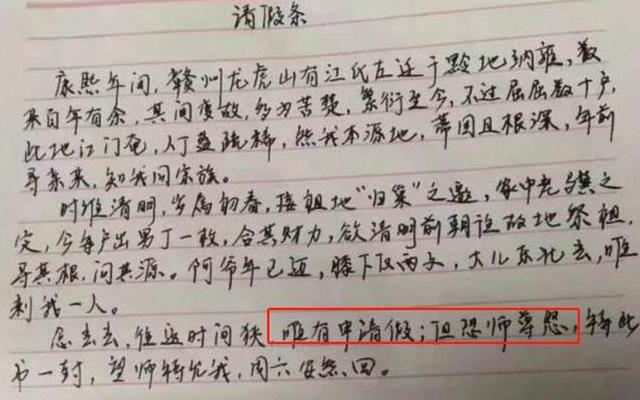 请假条
康熙年间，赣州龙虎山有江氏左迁于黔地纳雍，数
来百年有余，其间变故，多为苦楚，繁衍至今，不过屈屈数十户，
此地江门奄，人丁盈疏稀，然我本源地，蒂固且根深，年前
寻亲来，知我同宗族。
时维清明，岁属初春，接祖地“归集”之邀，家中老
定，今每户出男丁一枚，合其财力，欲清明前朝说故地祭祖，
寻其根，问其源。阿爷年已迈，膝下仅两子，大儿东北去，唯
剩我一人。
念去去，往返时间狭，唯有申请假；但恐师尊怒，特此
书一封，望师特允我，周六安然回。